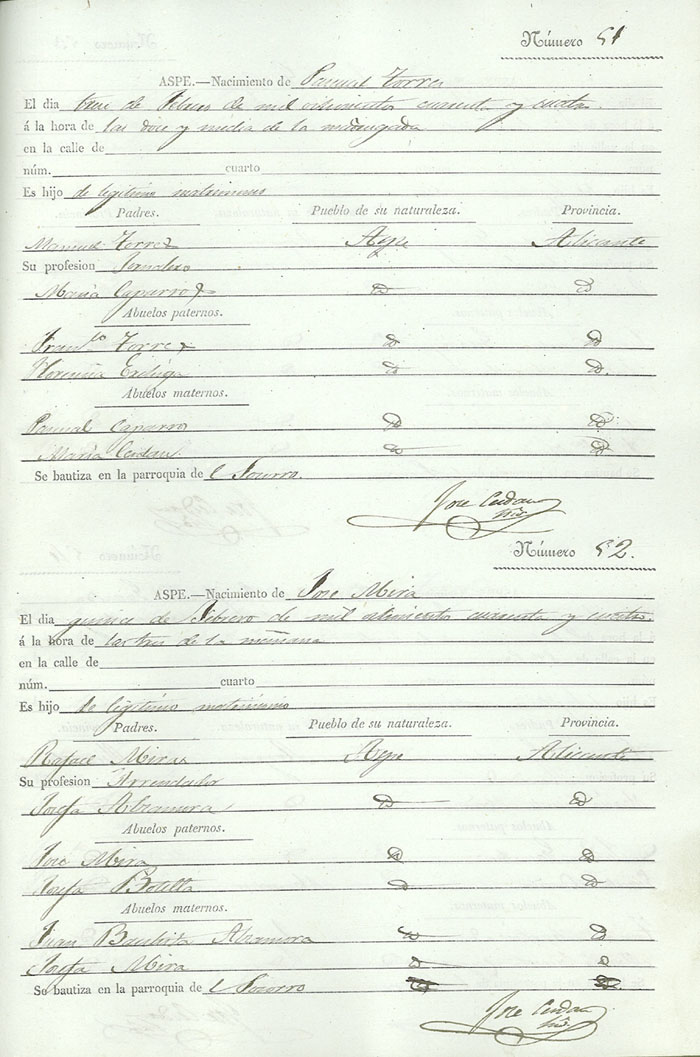 Número 51
ASPE.—Nacimiento de Pascual Torres
El dia trece de Febrero de mil ochocientos cuarenta y cuatro.
á la hora de las doce y media de la madrugada
en la calle de
núm. cuarto
Es hijo de legitimo matrimonio
Padres. Pueblo de su naturaleza. Provincia.
Manuel Torres Aspe Alicante
Su profesion Jornalero
Maria Caparros id id
Abuelos paternos.
Franco Torres id id
id id.
Abuelos maternos.
Pascual Caparros id id
Maria Cerdan id id
Se bautiza en la parroquia de l Socorro.
Jose Cerdan
Número 52.
ASPE.—Nacimiento de Jose Mira
El dia quince de Febrero de mil ochocientos cuarenta y cuatro.
á la hora de las tres de la mañana
en la calle de
núm. cuarto
Es hijo de legitimo matrimonio
Padres. Pueblo de su naturaleza. Provincia.
Rafael Mira Aspe Alicante
Su profesion Arrendador
Josefa id id
Abuelos paternos.
Jose Mira id id
Josefa Botella id id
Abuelos maternos.
Juan Bautista id id
Josefa Mira id id
Se bautiza en la parroquia de l Socorro
Jose Cerdan